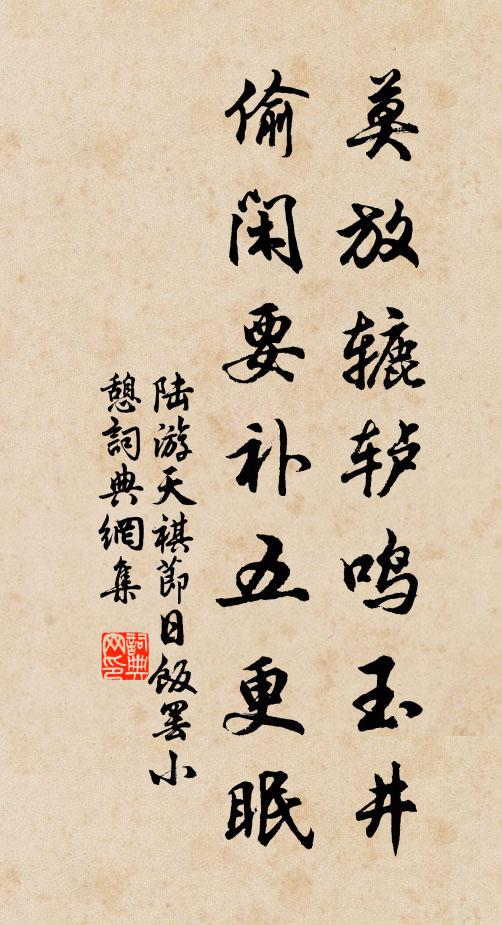 莫放辘轳鸣玉井
偷闲要补五更眠
陆游天祺節日飯罢小
憩詞典網集
詞典网印